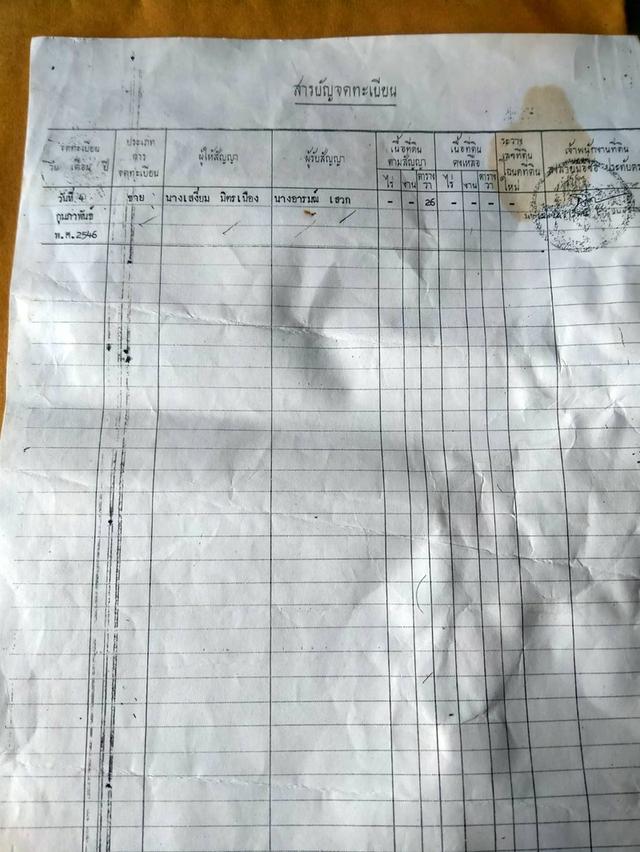 สารบัญจดทะเบียน
จดทะเบียน
วัน เดือน ปี
ประเภท
การ
จดทะเบียน
ผู้ให้สัญญา
ผู้รับสัญญา
เนื้อที่ดิน
ตามสัญญา
ไร่ งาน ตาราง
วา
เนื้อที่ดิน
คงเหลือ
ไร่ งาน ตาราง
วา
ระวาง
เลขที่ดิน
โฉนดที่ดิน
ใหม่
เจ้าพนักงานที่ดิน
วันที่ 4 ขาย นางเสงี่ยม มิตรเมือง นางอารมณ์ เสวก - - 26 - - - -
กุมภาพันธ์
พ.ศ.2546